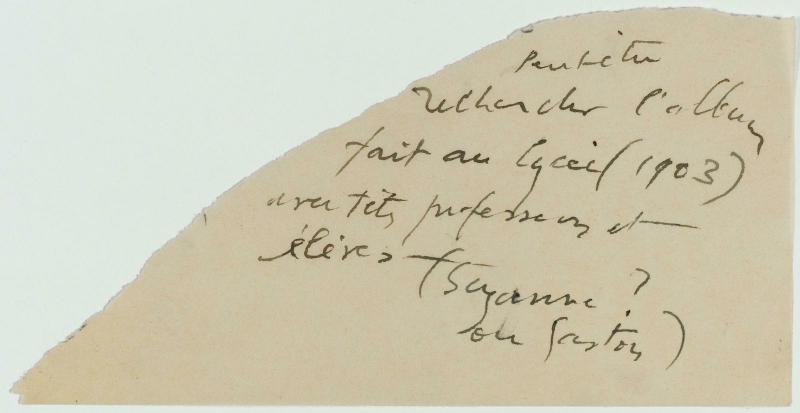 Peut-être
rechercher l'album
fait au lycée (1903)
avec têtes professeurs et
élèves (Suzanne ?
ou Gaston)